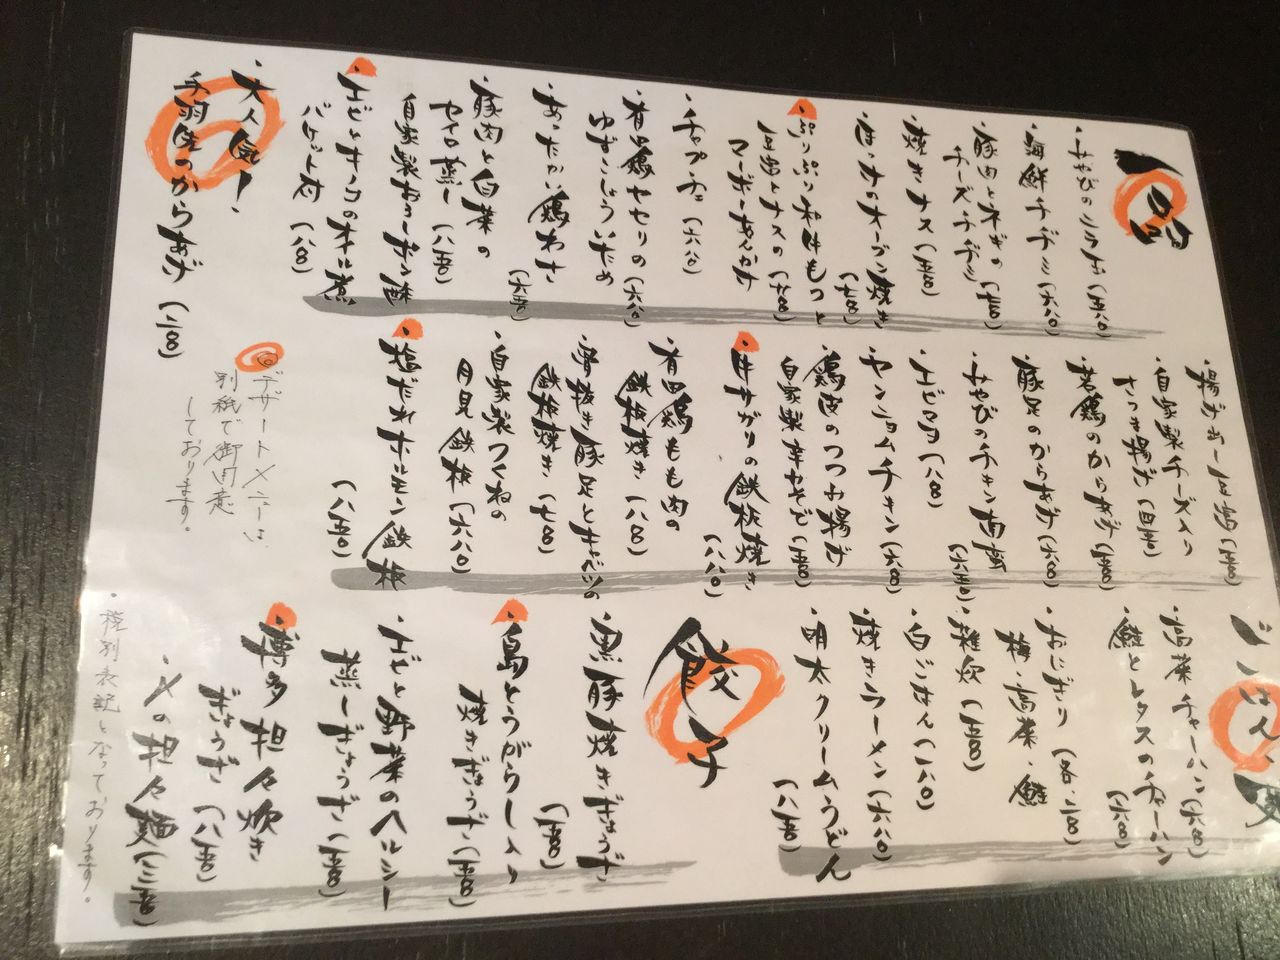 一品
・みやびのサラダ(五八〇)
・海鮮チヂミ(六八〇)
・豚肉とネギの
チーズチヂミ(七五〇)
・焼きナス(五八〇)
オーブン焼き(七八〇)
・ぷりぷり牛もつと
豆腐とナスの(七八〇)
マーボーあんかけ
・チャプチェ(六八〇)
・有田鶏セセリの(六八〇)
ゆずこしょういため
・あったかい鶏わさ(六五〇)
・豚肉と白菜の
セイロ蒸し(八五〇)
自家製ポン酢
・エビとキノコのオイル煮
バケット付(八八〇)
・大人気!
手羽先のからあげ(二八〇)
揚げ出し豆腐(五八〇)
・自家製チーズ入り
さつま揚げ(四五〇)
・若鶏のからあげ(五八〇)
・豚足のからあげ(六八〇)
・みやびのチキン南蛮(六五〇)
・エビマヨ(八八〇)
・ヤンニョムチキン(六八〇)
・鶏皮のつつみ揚げ
自家製辛みそで(五八〇)
・牛サガリの鉄板焼き(八八〇)
・有田鶏もも肉の
鉄板焼き(八八〇)
・骨抜き豚足とキャベツの
鉄板焼き(七八〇)
・自家製つくねの
月見鉄板(六八〇)
・塩だれホルモン鉄板(八五〇)
◎デザートメニューは、
別紙で御用意
しております。
ごはん・麺
・高菜チャーハン(六八〇)
・鮭とレタスのチャーハン(六八〇)
・おにぎり(各・二八〇)
梅・高菜・鮭
・雑炊(五八〇)
・白ごはん(一八〇)
・焼きラーメン(六八〇)
・明太クリームうどん(八五〇)
餃子
・黒豚焼きぎょうざ(五八〇)
・島とうがらし入り
焼きぎょうざ(五八〇)
・エビと野菜のヘルシー
蒸しぎょうざ(五八〇)
・博多担々炊き
ぎょうざ(八五〇)
・〆の担々麺(三五〇)
・税別表記となっております。